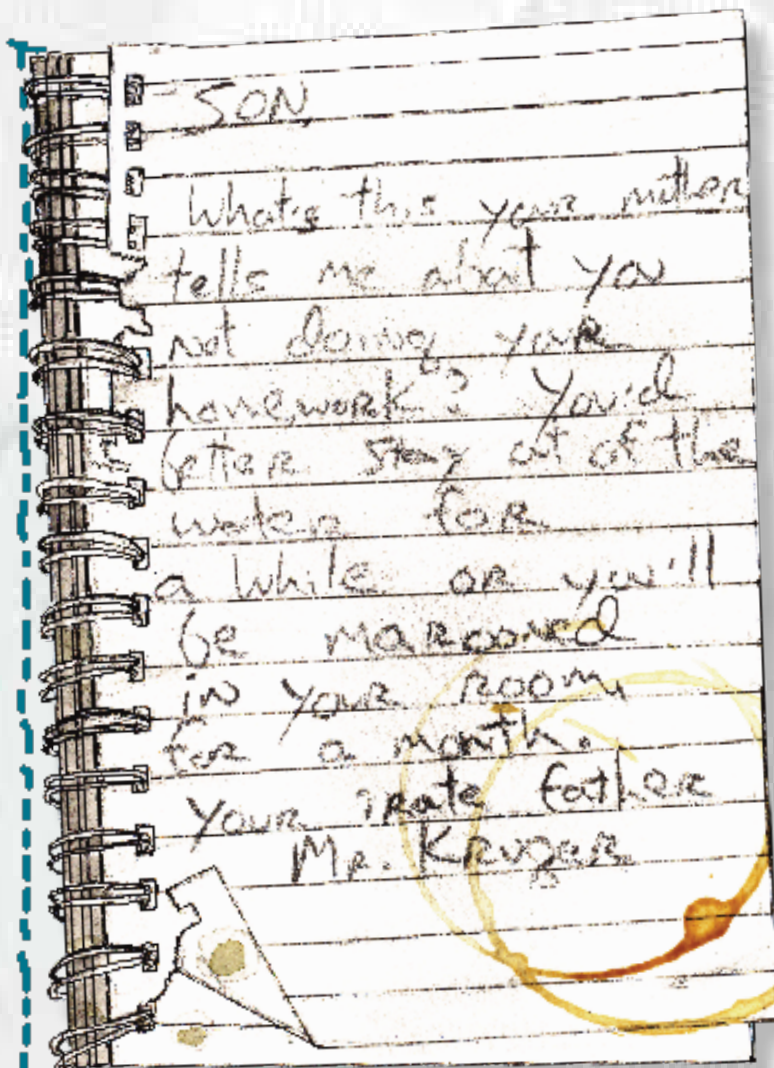 SON
What's this your mother
tells me about you
not doing your
homework? You'd
better stay out of the
water for
a while or you'll
be marooned
in your room
for a month.
Your irate father
Mr. Kruger